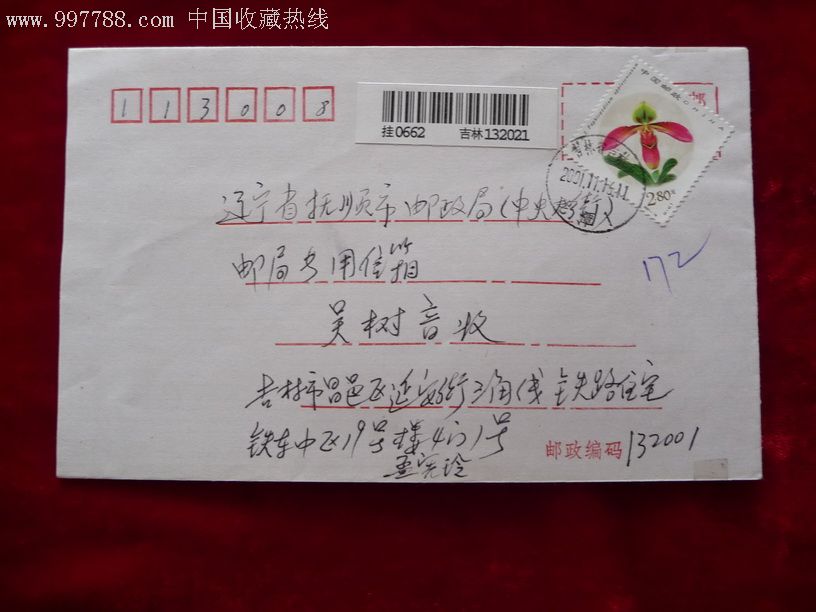 www.997788.com 中国收藏热线
113008
挂0662 吉林132021
中国邮政 CHINA
2.80元
2001.11.16.11
辽宁省抚顺市邮政局(中央路街)
邮局专用信箱
172
吴树音收
吉林市昌邑区延安街三角线 铁路住宅
铁东中区19号楼4门1号
邮政编码132001
孟宪玲